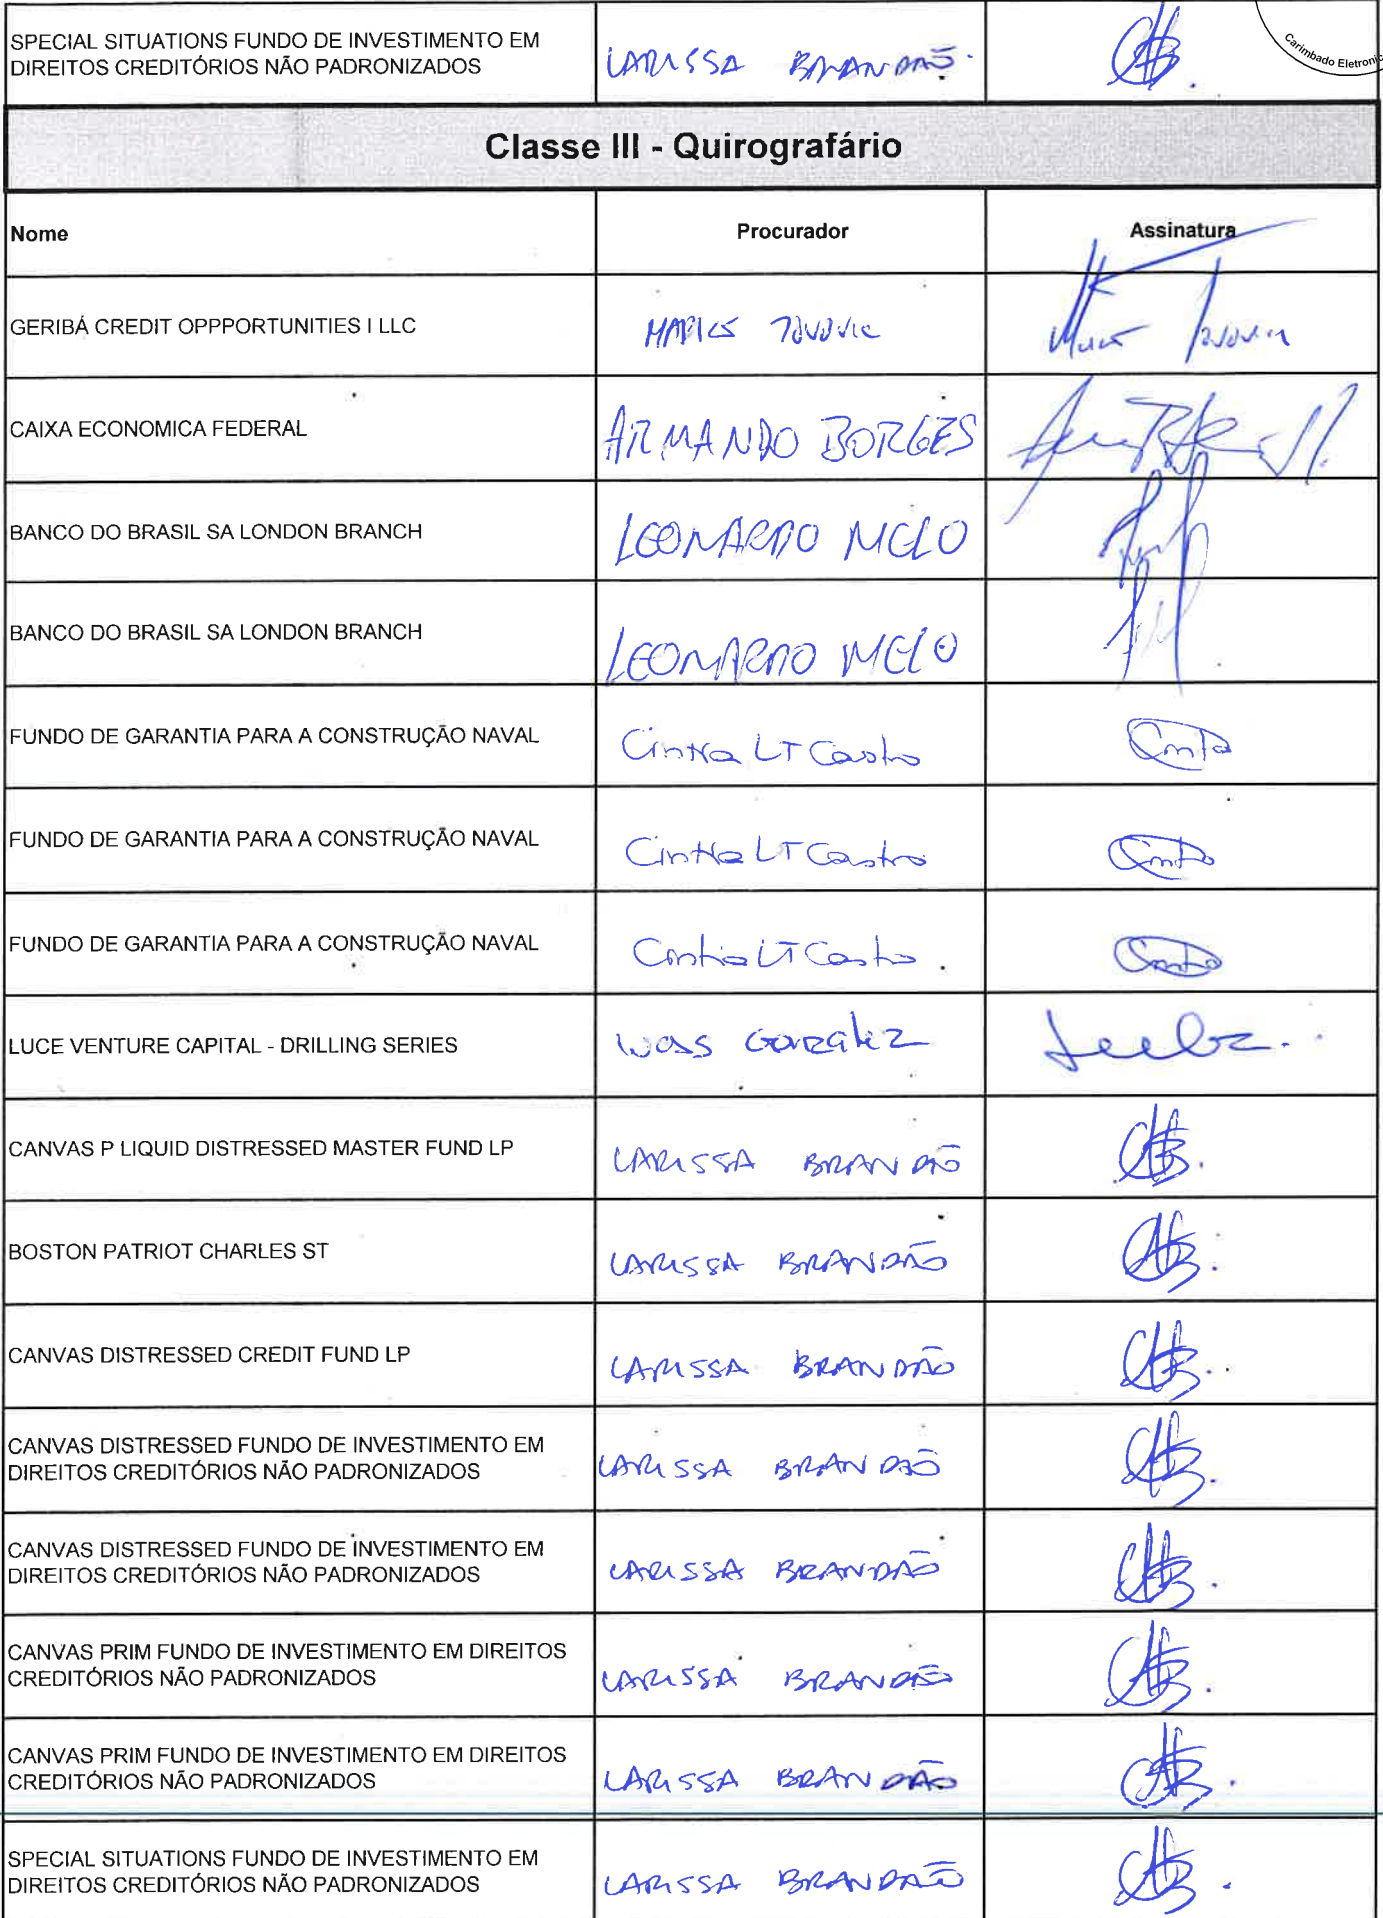 SPECIAL SITUATIONS FUNDO DE INVESTIMENTO EM
DIREITOS CREDITÓRIOS NÃO PADRONIZADOS
LARISSA BRANDÃO
Carimbado Eletronic
Classe III - Quirografário
Nome
Procurador
Assinatura
GERIBÁ CREDIT OPPPORTUNITIES I LLC
CAIXA ECONOMICA FEDERAL
ARMANDO BORGES
BANCO DO BRASIL SA LONDON BRANCH
LEONARDO MELO
BANCO DO BRASIL SA LONDON BRANCH
LEONARDO MELO
FUNDO DE GARANTIA PARA A CONSTRUÇÃO NAVAL
Cintia LT Castro
FUNDO DE GARANTIA PARA A CONSTRUÇÃO NAVAL
Cintia LT Castro
FUNDO DE GARANTIA PARA A CONSTRUÇÃO NAVAL
Cintia LT Castro
LUCE VENTURE CAPITAL - DRILLING SERIES
CANVAS P LIQUID DISTRESSED MASTER FUND LP
LARISSA BRANDÃO
BOSTON PATRIOT CHARLES ST
LARISSA BRANDÃO
CANVAS DISTRESSED CREDIT FUND LP
LARISSA BRANDÃO
CANVAS DISTRESSED FUNDO DE INVESTIMENTO EM
DIREITOS CREDITÓRIOS NÃO PADRONIZADOS
LARISSA BRANDÃO
CANVAS DISTRESSED FUNDO DE INVESTIMENTO EM
DIREITOS CREDITÓRIOS NÃO PADRONIZADOS
LARISSA BRANDÃO
CANVAS PRIM FUNDO DE INVESTIMENTO EM DIREITOS
CREDITÓRIOS NÃO PADRONIZADOS
LARISSA BRANDÃO
CANVAS PRIM FUNDO DE INVESTIMENTO EM DIREITOS
CREDITÓRIOS NÃO PADRONIZADOS
LARISSA BRANDÃO
SPECIAL SITUATIONS FUNDO DE INVESTIMENTO EM
DIREITOS CREDITÓRIOS NÃO PADRONIZADOS
LARISSA BRANDÃO